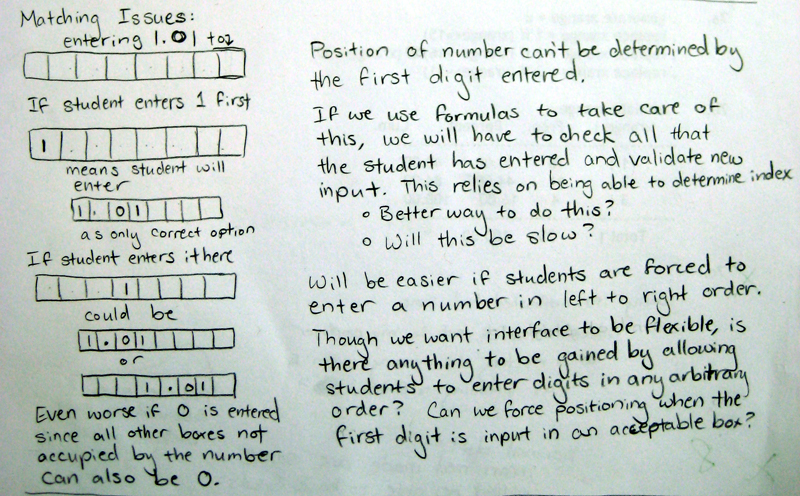 Matching Issues:
entering 1.01 to
If student enters 1 first
1
means student will
enter
1.01
as only correct option
If student enters it here
1
could be
1.01
or
1.01
Even worse if 0 is entered
since all other boxes not
occupied by the number
can also be 0.
Position of number can't be determined by
the first digit entered.
If we use formulas to take care of
this, we will have to check all that
the student has entered and validate new
input. This relies on being able to determine index
o Better way to do this?
o Will this be slow?
Will be easier if students are forced to
enter a number in left to right order.
Though we want interface to be flexible, is
there anything to be gained by allowing
students to enter digits in any arbitrary
order? Can we force positioning when the
first digit is input in an acceptable box?